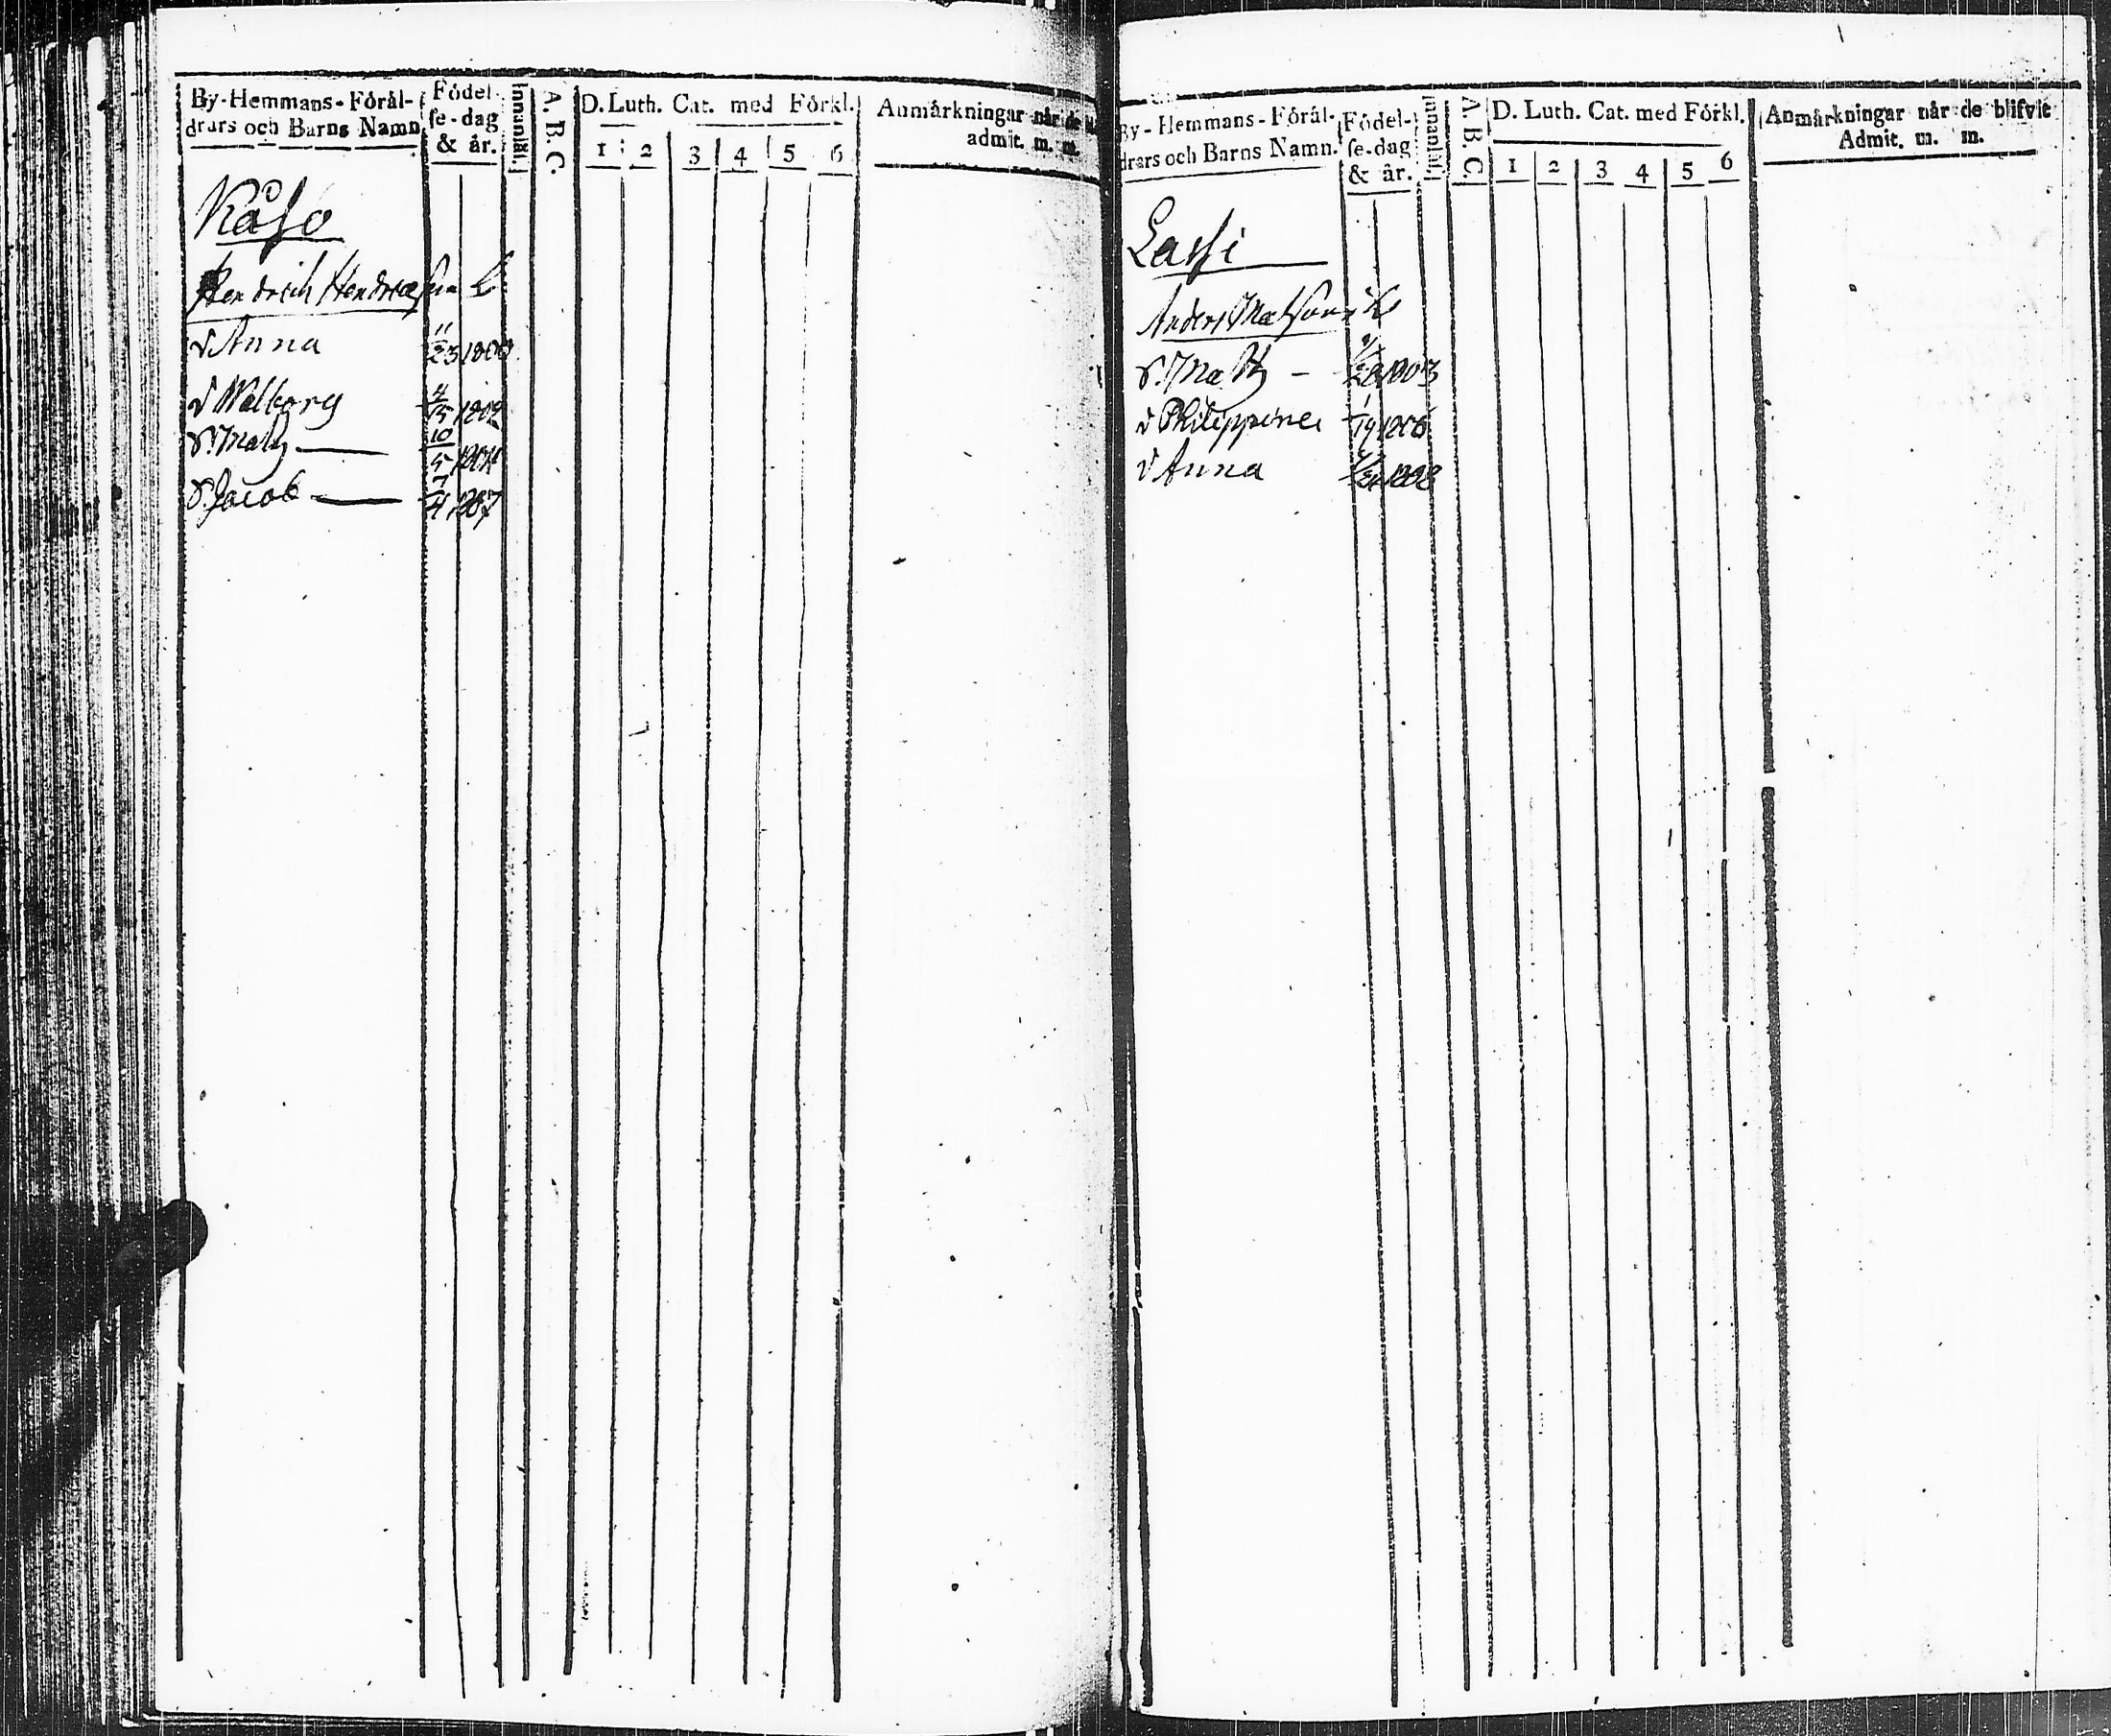 By-Hemmans-Förål-
drars och Barns Namn
Födel-
se-dag
& år.
Innanläs.
A. B. C.
D. Luth. Cat. med Förkl.
1 2 3 4 5 6
Anmårkningar når de
admit. m. m.
Kåso
Hendrich Hendricsson
d Anna 11/23 1800
d Walborg 4/15 1802
S. Matz 10/5 1804
S. Jacob 7/4 1807
By-Hemmans-Förål-
drars och Barns Namn.
Födel-
se-dag
& år.
Innanläs.
A. B. C.
D. Luth. Cat. med Förkl.
1 2 3 4 5 6
Anmårkningar når de blifvit
Admit. m. m.
Lassi
Anders Matsson
S. Matz 1803
d Philippina 1/19 1806
d Anna 1808